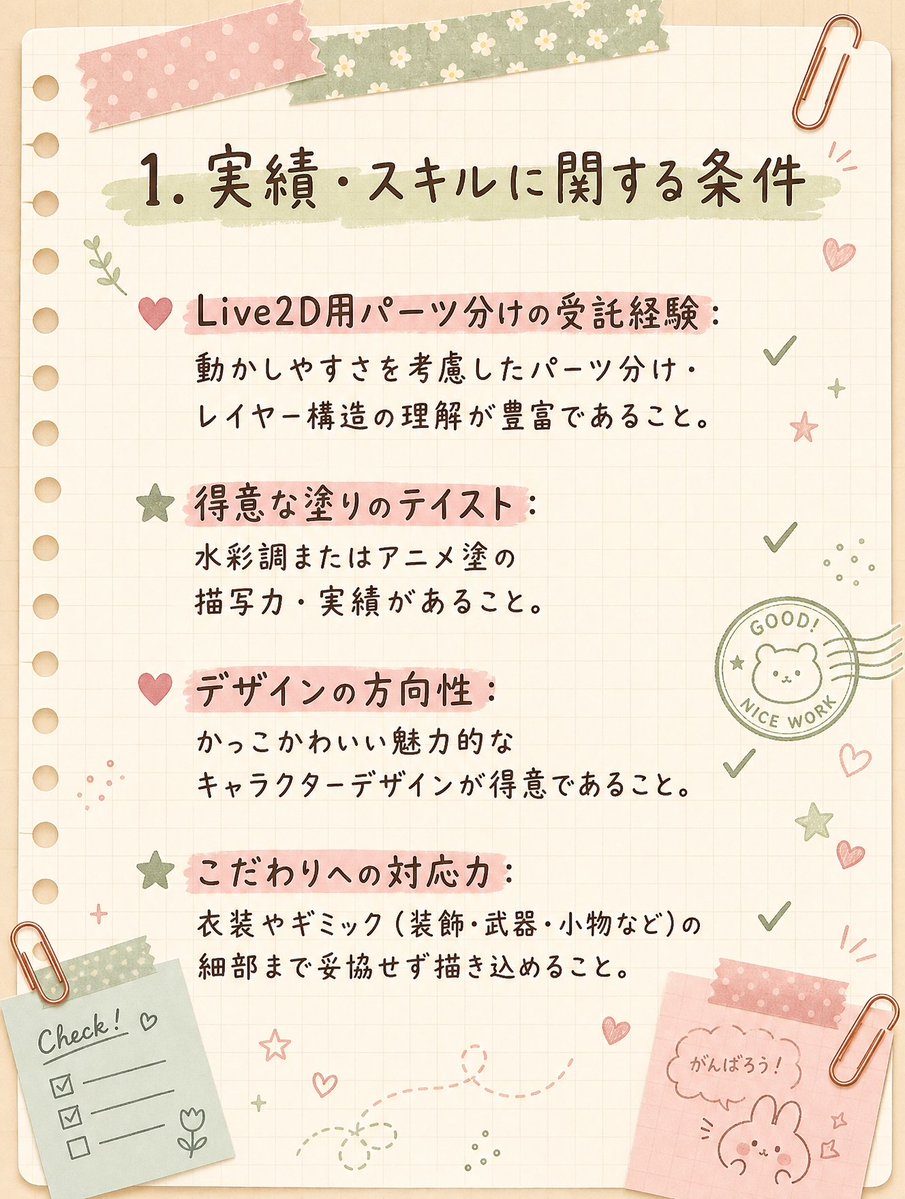 1. 実績・スキルに関する条件
Live2D用パーツ分けの受託経験：
動かしやすさを考慮したパーツ分け・
レイヤー構造の理解が豊富であること。
得意な塗りのテイスト：
水彩調またはアニメ塗の
描写力・実績があること。
GOOD!
NICE WORK
デザインの方向性：
かっこかわいい魅力的な
キャラクターデザインが得意であること。
こだわりへの対応力：
衣装やギミック（装飾・武器・小物など）の
細部まで妥協せず描き込めること。
Check!
がんばろう！